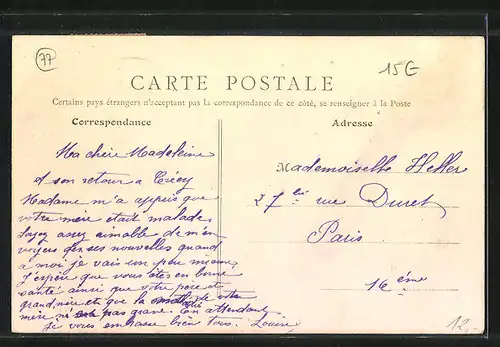 77
15€
CARTE POSTALE
Certains pays étrangers n'acceptant pas la correspondance de ce côté, se renseigner à la Poste
Correspondance
Adresse
Ma chère Madeleine
A son retour a Crécy
Madame m'a appris que
votre mère était malade.
Soyez assez aimable de m'en
voyer de ses nouvelles quand
a moi je vais un peu mieux,
J'espère que vous êtes en bonne
santé ainsi que votre père et
grand mère et que la de votre
mère n'est pas grave. En attendant
je vous embrasse bien tous. Louise
Mademoiselle Heller
27 bis rue Duret
Paris
16 éme
12,-